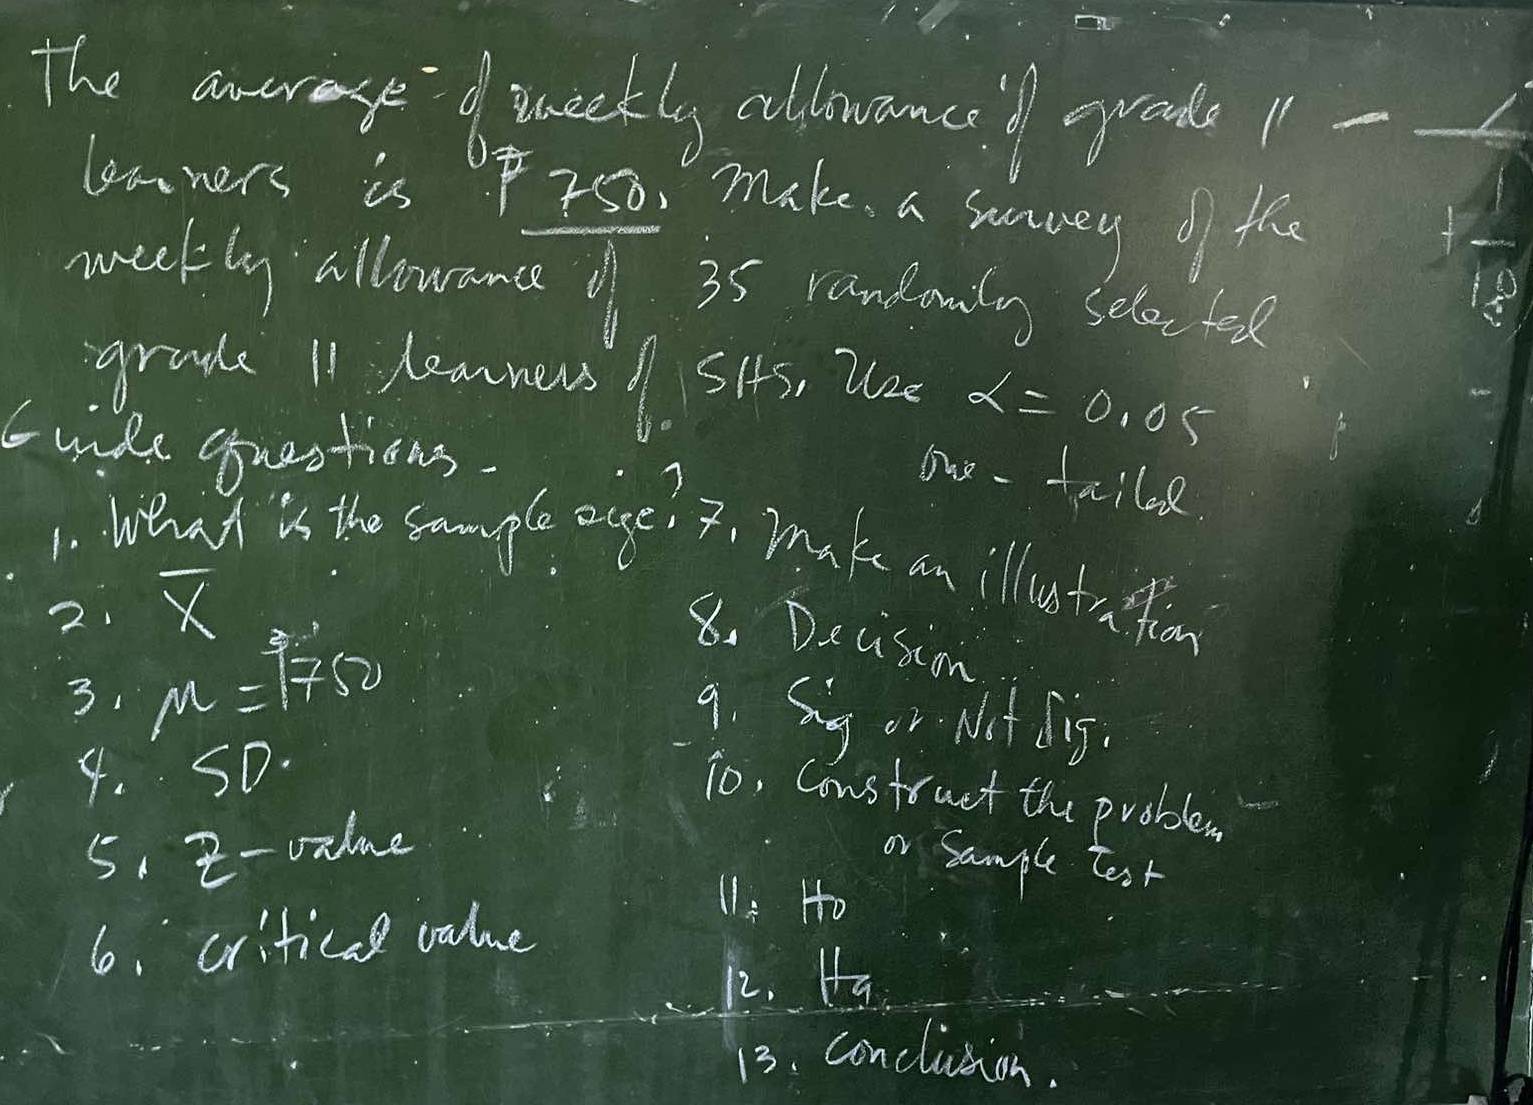 The average of weekly allowance of grade 11
learners is ₱750. Make a survey of the
weekly allowance of 35 randomly selected
grade 11 learners of SHS. Use α = 0.05
one-tailed.
Guide questions.
1. What is the sample size?
2. X̄
3. μ = ₱750
4. SD.
5. Z-value
6. critical value
7. Make an illustration
8. Decision
9. Sig or Not Sig.
10. Construct the problem
or Sample Test
11. Ho
12. Ha
13. Conclusion.